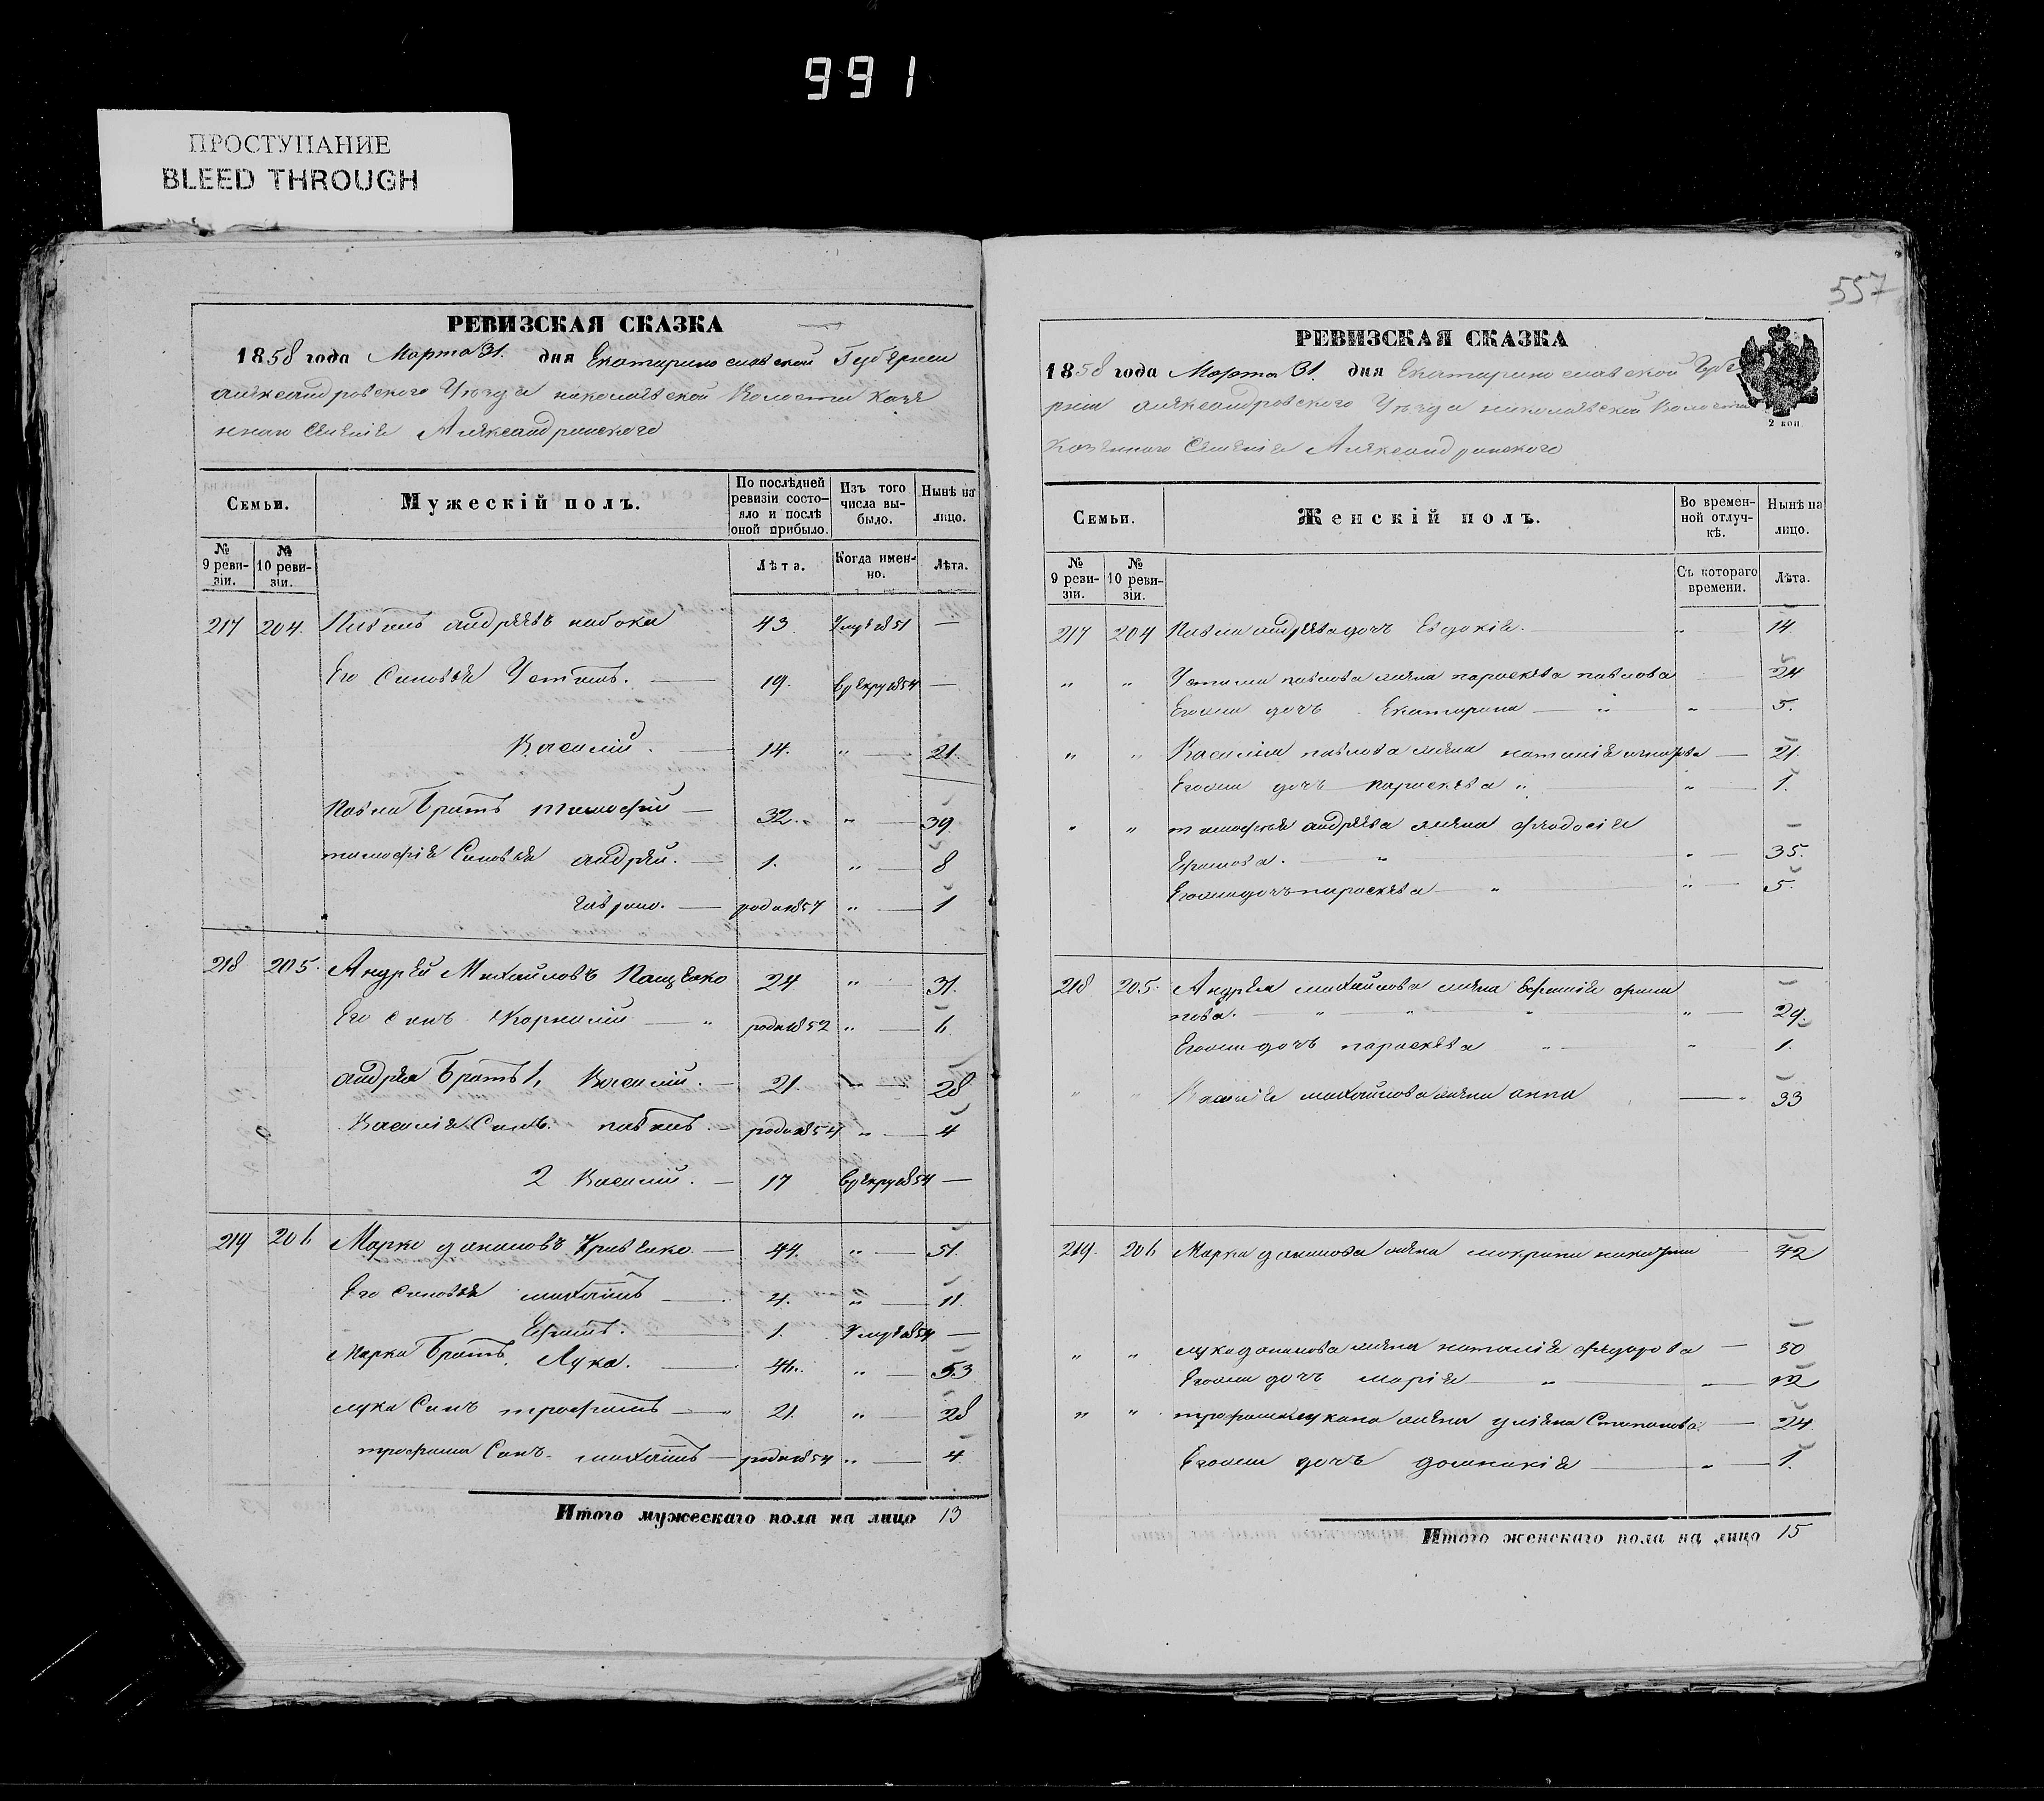 991
ПРОСТУПАНИЕ
BLEED THROUGH
РЕВИЗСКАЯ СКАЗКА
1858 года Марта 31. дня Екатеринославской Губернии
александровского Уезда николаевской Волости Казе
нного Селения Александринского
Семьи.
Мужескій полъ.
По послѣдней ревизіи состо-яло и послѣ оной прибыло.
Изъ того числа вы-было.
Нынѣ на лицо.
№ 9 реви-зіи.
№ 10 реви-зіи.
Лѣта.
Когда имен-но.
Лѣта.
217 204. андреевъ набока 43 51 —
Его Синовья Устинъ. — 19. 54 —
Василий. — 14. " — 21.
Павла Братъ тимофий — 32. " — 39
тимофия Синовья андрей. — 1. " — 8
гаврило. — роди 1857 " — 1
218 205. Андрей Михайловъ Пащенко 24 " — 31.
Его синъ Корнилий — " роди 1852 " — 6
андрея Братъ 1, Василий. — 21. — 28
Василия Синъ. павелъ. — роди 1854 " — 4
2 Василий. — 17 54 —
219 206 Марко Кривенко. — 44. " — 51.
Его синовья михаилъ — 4. " — 11.
Ефимъ. 1. 54 —
Марка Братъ. Лука. — " — 53
лука Синъ трофимъ — " 21. " — 28
трофима Синъ. михаилъ — роди 1854 " — 4
Итого мужескаго пола на лицо 13
557
РЕВИЗСКАЯ СКАЗКА
1858 года Марта 31. дня Екатеринославской Губе
рнии александровского Уезда николаевской Волости
2 коп.
Казенного Селения Александринского
Семьи.
Женскій полъ.
Во времен-ной отлуч-кѣ.
Нынѣ на лицо.
№ 9 реви-зіи.
№ 10 реви-зіи.
Съ котораго времени.
Лѣта.
217 204 Павла андреева дочъ Евдокия. — " — 14.
" " Устина павлова жена параскева павлова — 24
Егоже дочъ Екатерина — " " — 5.
" " Василия павлова жена наталия — 21.
Егоже дочъ параскева " — " — 1.
" " тимофея андреева жена феодосия
Ефимова. — " " — 35.
Егоже дочъ параскева — " " — 5.
218 205. Андрея михайлова жена
пова. — " " " " — 29.
Егоже дочъ параскева " — " — 1.
" " Василия михайлова жена анна — " 33
219. 206 Марка жена 42
" " лука жена наталия федорова — 50
Егоже дочъ мария — " " — 12
" " трофима жена улияна Степанова. — 24.
Егоже дочъ домникия — " — 1.
Итого женскаго пола на лицо 15